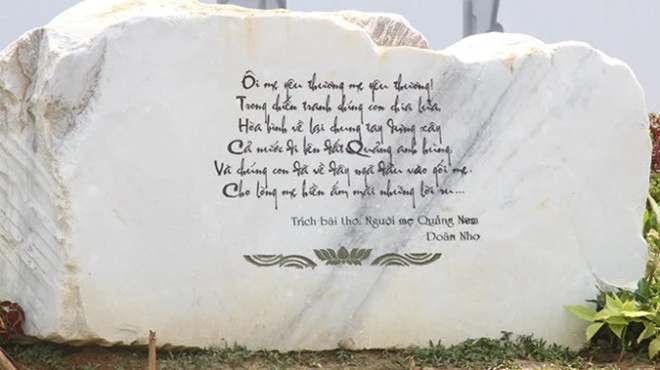 Ôi mẹ yêu thương mẹ yêu thương!
Trong chiến tranh chúng con chia lửa,
Hòa bình về lại chung tay dựng xây
Cả nước đi lên đất Quảng anh hùng.
Và chúng con đã về đây ngả đầu vào gối mẹ.
Cho lòng mẹ hiền ấm mãi những lời ru...
Trích bài thơ: Người mẹ Quảng Nam
Doãn Nho